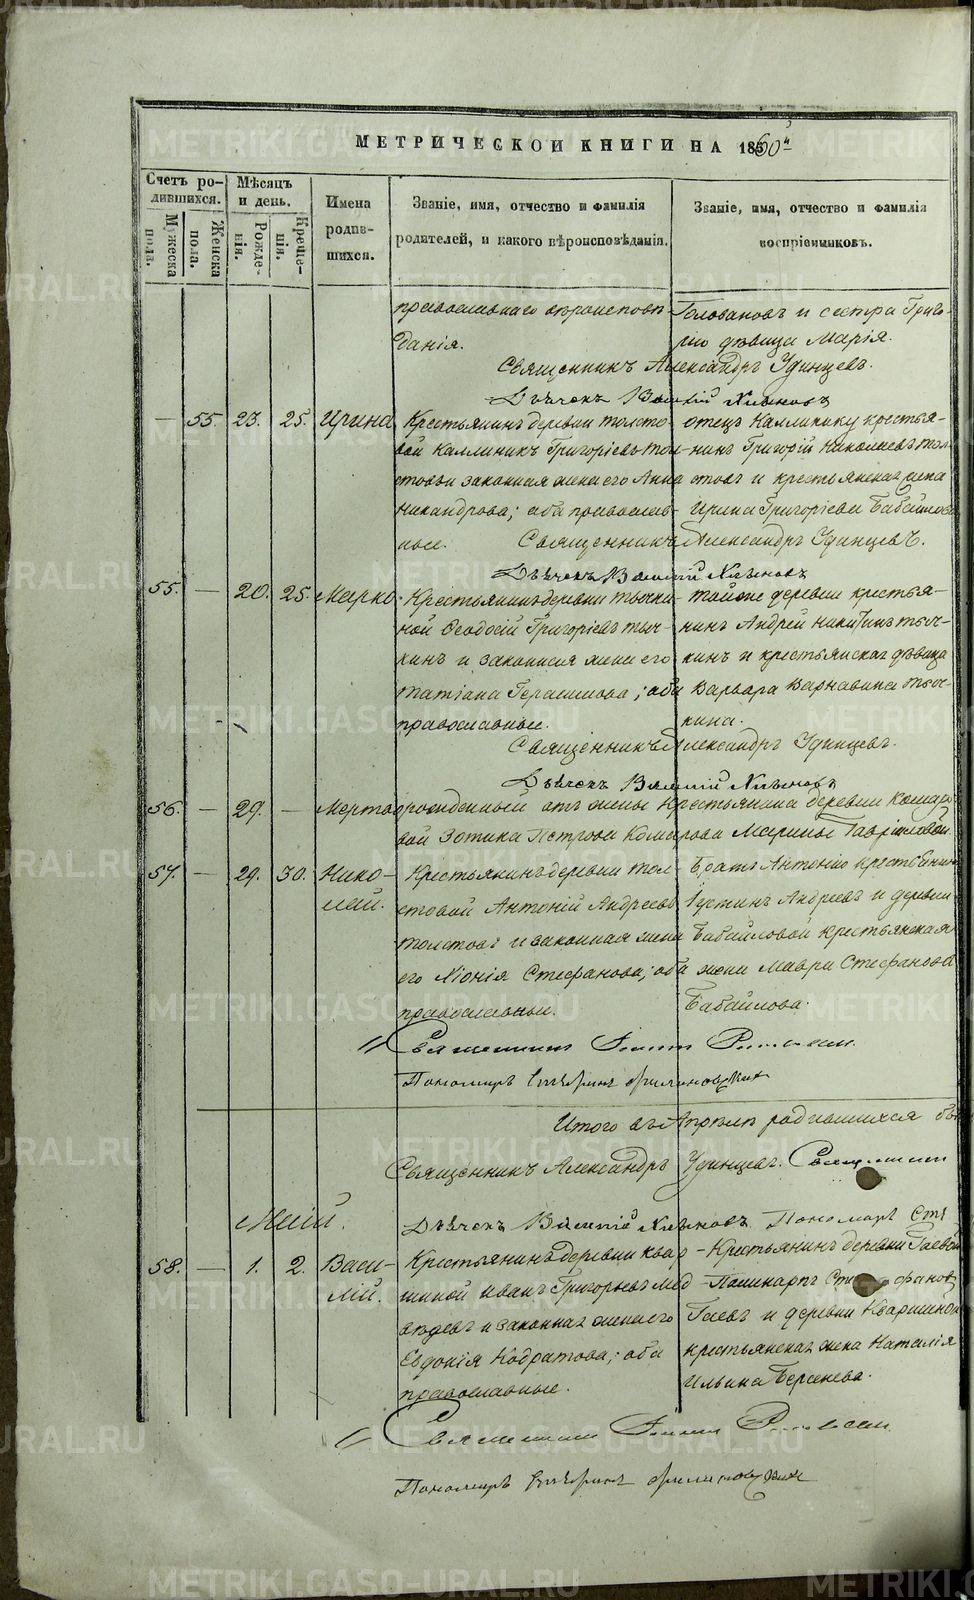 МЕТРИЧЕСКОЙ КНИГИ НА 1860й
Счетъ ро-
дившихся.
Мужеска
пола.
Женска
пола.
Мѣсяцъ
и день.
Рожде-
нія.
Креще-
нія.
Имена
родив-
шихся.
Званіе, имя, отчество и фамилія
родителей, и какого вѣроисповѣданія.
Званіе, имя, отчество и фамилія
воспріемниковъ.
православнаго вѣроисповѣ-
данія.
Головановъ и сестра Григо-
рію дѣвица Марія.
Священникъ Александръ Удинцевъ.
Дьячекъ
— 55. 23. 25. Ирина
Крестьянинъ деревни Толсто-
вой Каллиникъ Григорьевъ Тол-
стовъ и законная жена его Анна
Никандрова; оба православ-
ные.
отецъ Каллинику крестья-
нинъ Григорій Николаевъ Тол-
стовъ и крестьянская жена
Ирина Григорьева Бабайлова
Священникъ Александръ Удинцевъ.
Дьячекъ
55. — 20. 25. Марко.
Крестьянинъ деревни Тычки-
ной Ѳеодосій Григорьевъ Тыч-
кинъ и законная жена его
Татіана Герасимова; оба
православные.
той же деревни крестья-
нинъ Андрей Никитинъ Тыч-
кинъ и крестьянская дѣвица
Варвара Варнавина Тыч-
кина.
Священникъ Александръ Удинцевъ.
Дьячекъ
56. — 29. — Мертворожденный отъ жены крестьянина деревни Комаро-
вой Зотика Петрова Комарова Марины Гавриловой.
57. — 29. 30. Нико-
лай.
Крестьянинъ деревни Тол-
стовой Антоній Андреевъ
Толстовъ и законная жена
его Стефанова; оба
православные.
Братъ Антонію крестьянинъ
Іустинъ Андреевъ и деревни
Бабайловой крестьянская
жена Мавра Стефанова
Бабайлова.
Священникъ
Пономарь
Итого въ Апрѣлѣ родившихся
Священникъ Александръ Удинцевъ. Священникъ
Май.
Дьячекъ Пономарь
58. — 1. 2. Васи-
лій.
Крестьянинъ деревни Квар-
шиной Иванъ Григорьевъ Мед-
вѣдевъ и законная жена его
Евдокія Кодратова; оба
православные.
Крестьянинъ деревни Гаевой
Гаевъ и деревни Кваршиной
крестьянская жена Наталія
Ильина Берсенева.
Священникъ
Пономарь
METRIKI.GASO-URAL.RU